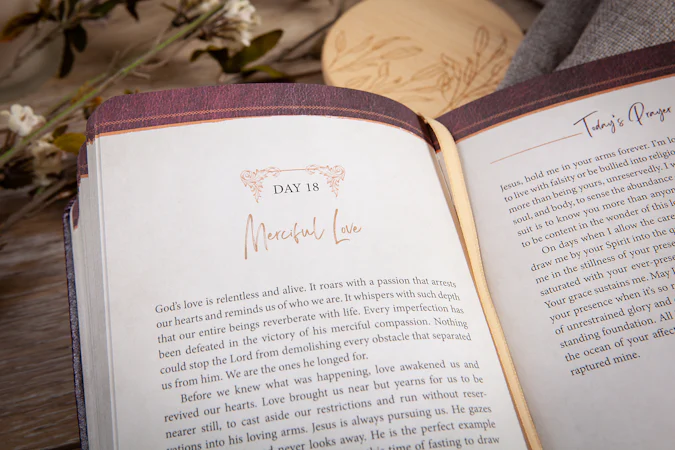 DAY 18
Merciful Love
God's love is relentless and alive. It roars with a passion that arrests
our hearts and reminds us of who we are. It whispers with such depth
that our entire beings reverberate with life. Every imperfection has
been defeated in the victory of his merciful compassion. Nothing
could stop the Lord from demolishing every obstacle that separated
us from him. We are the ones he longed for.
Before we knew what was happening, love awakened us and
revived our hearts. Love brought us near but yearns for us to be
nearer still, to cast aside our restrictions and run without reser-
vations into his loving arms. Jesus is always pursuing us. He gazes
and never looks away. He is the perfect example
this time of fasting to draw
Today's Prayer
Jesus, hold me in your arms forever. I'm lo
to live with falsity or be bullied into religio
more than being yours, unreservedly. I w
soul, and body, to sense the abundance
suit is to know you more than anyon
to be content in the wonder of this l
On days when I allow the care
draw me by your Spirit into the q
me in the stillness of your prese
saturated with your ever-prese
Your grace sustains me. May I
your presence when it's so r
of unrestrained glory and
standing foundation. All
the ocean of your affec
raptured mine.